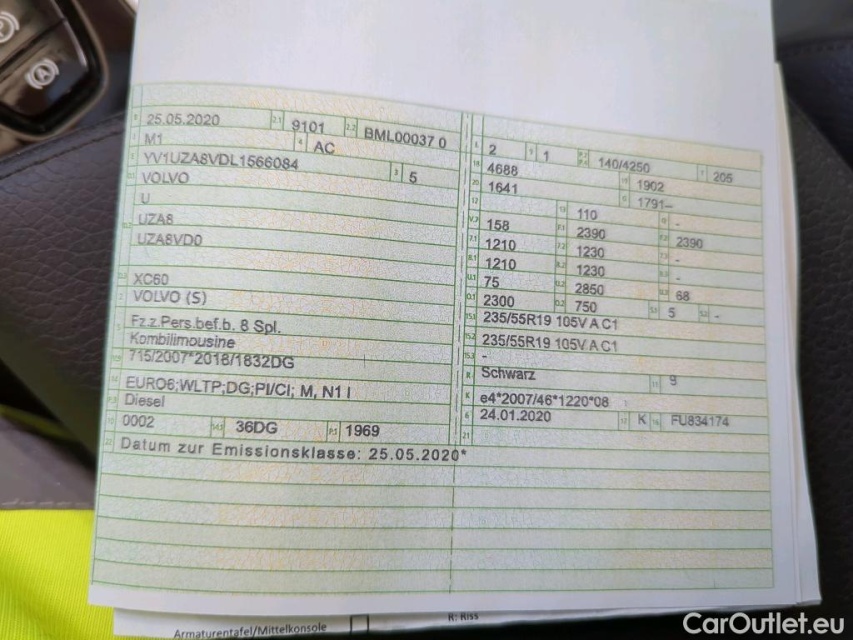 25.05.2020 2.1 9101 2.2 BML00037 0
M1 4 AC
YV1UZA8VDL1566084 3 5
VOLVO
U
UZA8
UZA8VD0
XC60
VOLVO (S)
Fz.z.Pers.bef.b. 8 Spl.
Kombilimousine
715/2007*2018/1832DG
EURO6;WLTP;DG;PI/CI; M, N1 I
Diesel
0002 14.1 36DG P.1 1969
Datum zur Emissionsklasse: 25.05.2020*
2 9 1 140/4250 T 205
4688 1902
1641 1791-
110 -
158 2390 2390
1210 1230 -
1210 1230 -
75 2850 68
2300 750 5 -
15.1 235/55R19 105V A C1
15.2 235/55R19 105V A C1
15.3 -
R Schwarz 11 9
K e4*2007/46*1220*08
6 24.01.2020 17 K 16 FU834174
21
Armaturentafel/Mittelkonsole
R: Riss
CarOutlet.eu